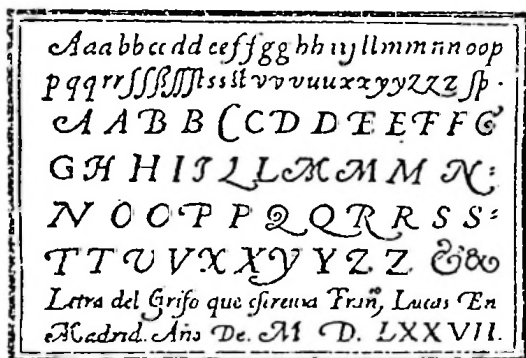 Aaa bb cc dd eef f gg hh iij ll mm nn oop
p qq rr ſſ ſſ ß ſſ ſſ ſt ss ſt v v v uu xx yy zzz ſp.
A A B B C C D D E E F F G
G H H I I L L M M M N:
N O O P P Q Q R R S S:
T T U V X X Y Y Z Z & &
Letra del Grifo que escreuia Frañ, Lucas En
Madrid. Año De. M D. LXXVII.